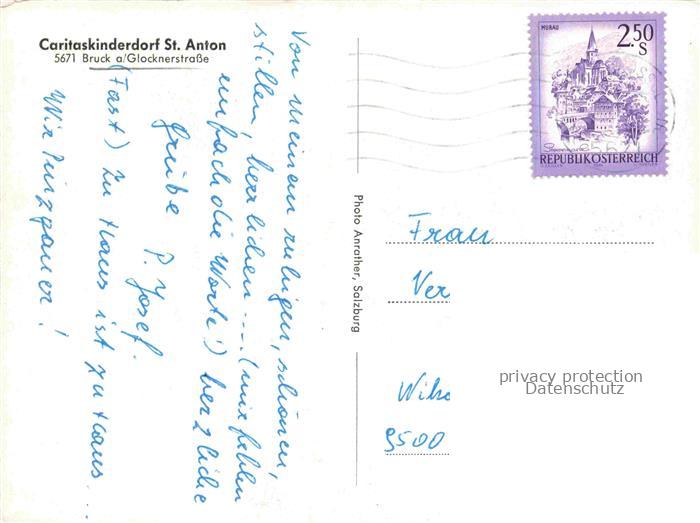 Caritaskinderdorf St. Anton
5671 Bruck a/Glocknerstraße
Von meinem ruhigen, schönen,
stillen, herrlichen .... (mir fehlen
einfach die Worte!) herzliche
Grüße P. Josef.
(Fast) zu Haus ist zu Haus ...
Wir Pinzgauer!
Photo Anrather, Salzburg
MURAU
2.50
S
REPUBLIK ÖSTERREICH
Frau
Ver
9500
privacy protection
Datenschutz